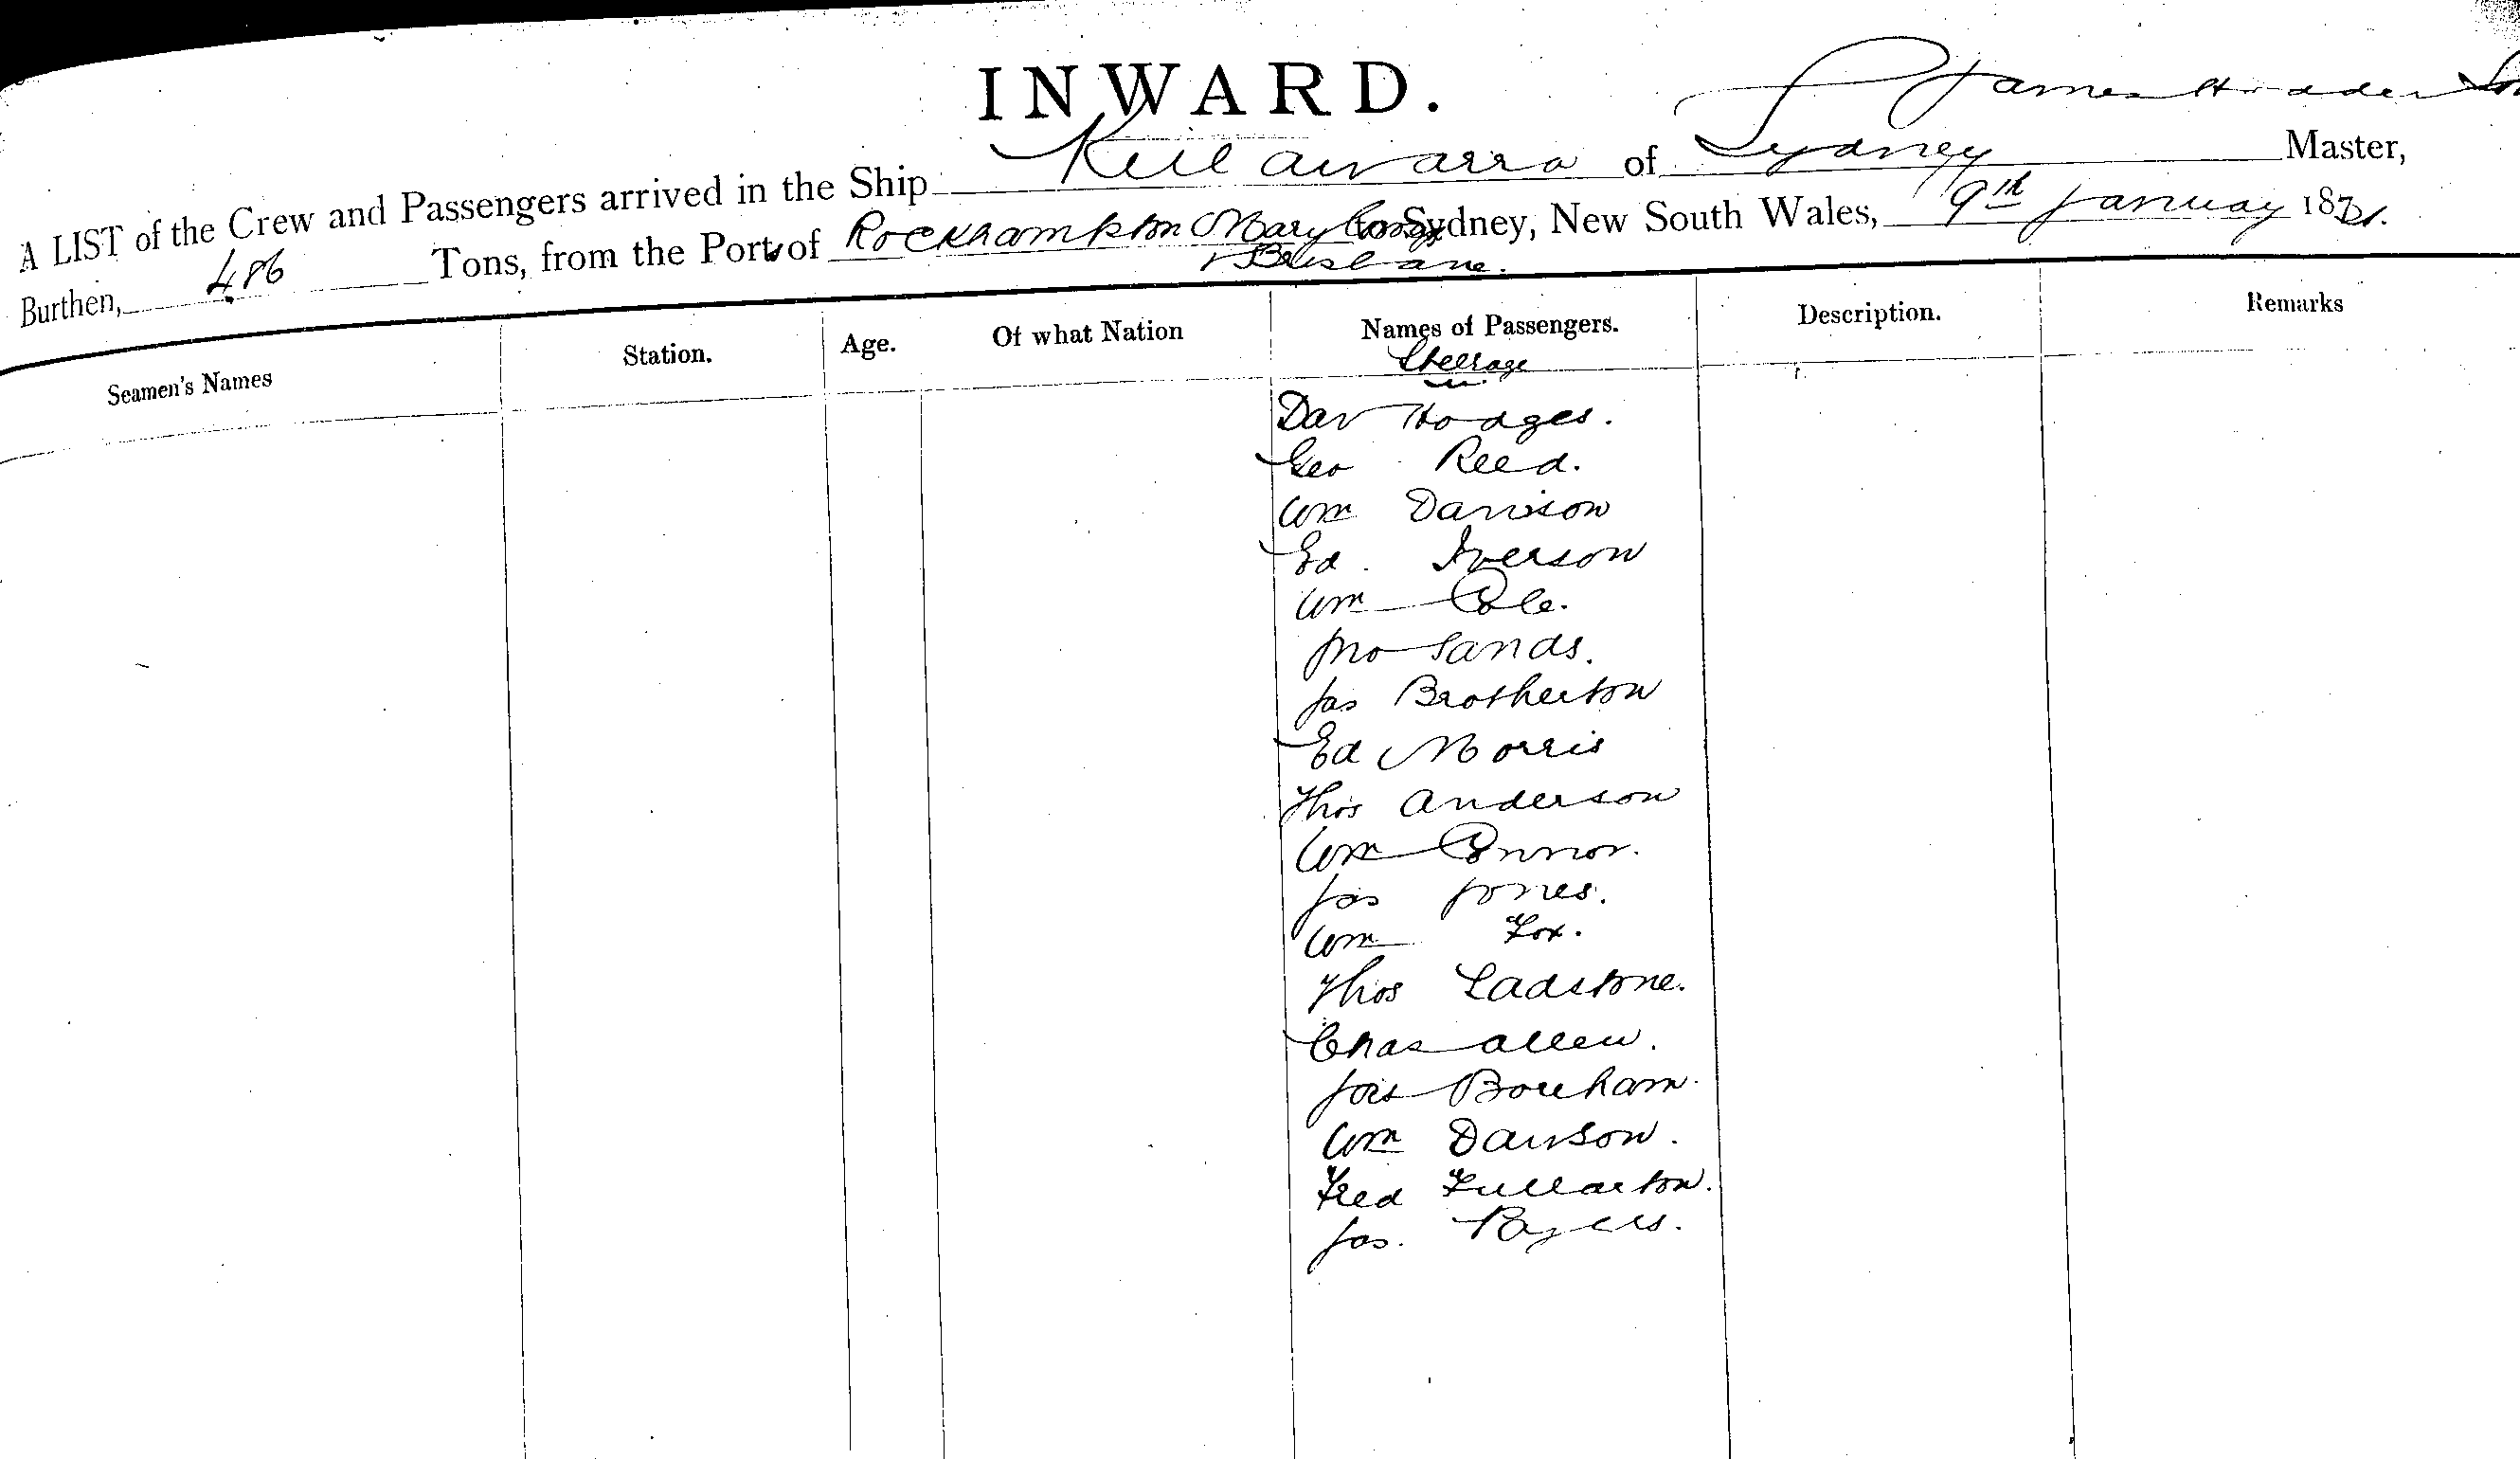 INWARD.
James
A LIST of the Crew and Passengers arrived in the Ship Keilawarra of Sydney Master,
Burthen, 486 Tons, from the Ports of Rockhampton Mary Boro to Sydney, New South Wales, 9th January 187
& Brisbane.
Seamen's Names Station. Age. Of what Nation Names of Passengers. Description. Remarks
Steerage
Dav Hodges.
Geo Reed.
Wm Davison
Ed. Iverson
Wm Cole.
Jno Sands.
Jas Brotherton
Ed Morris
Thos Anderson
Wm Connor.
Jas Jones.
Wm Fox.
Thos Ladstone.
Chas Allen.
Jas Boreham.
Wm Dawson.
Fred Fullarton.
Jas. Byers.